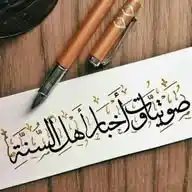 صوتيات وأخبار أهل السنة